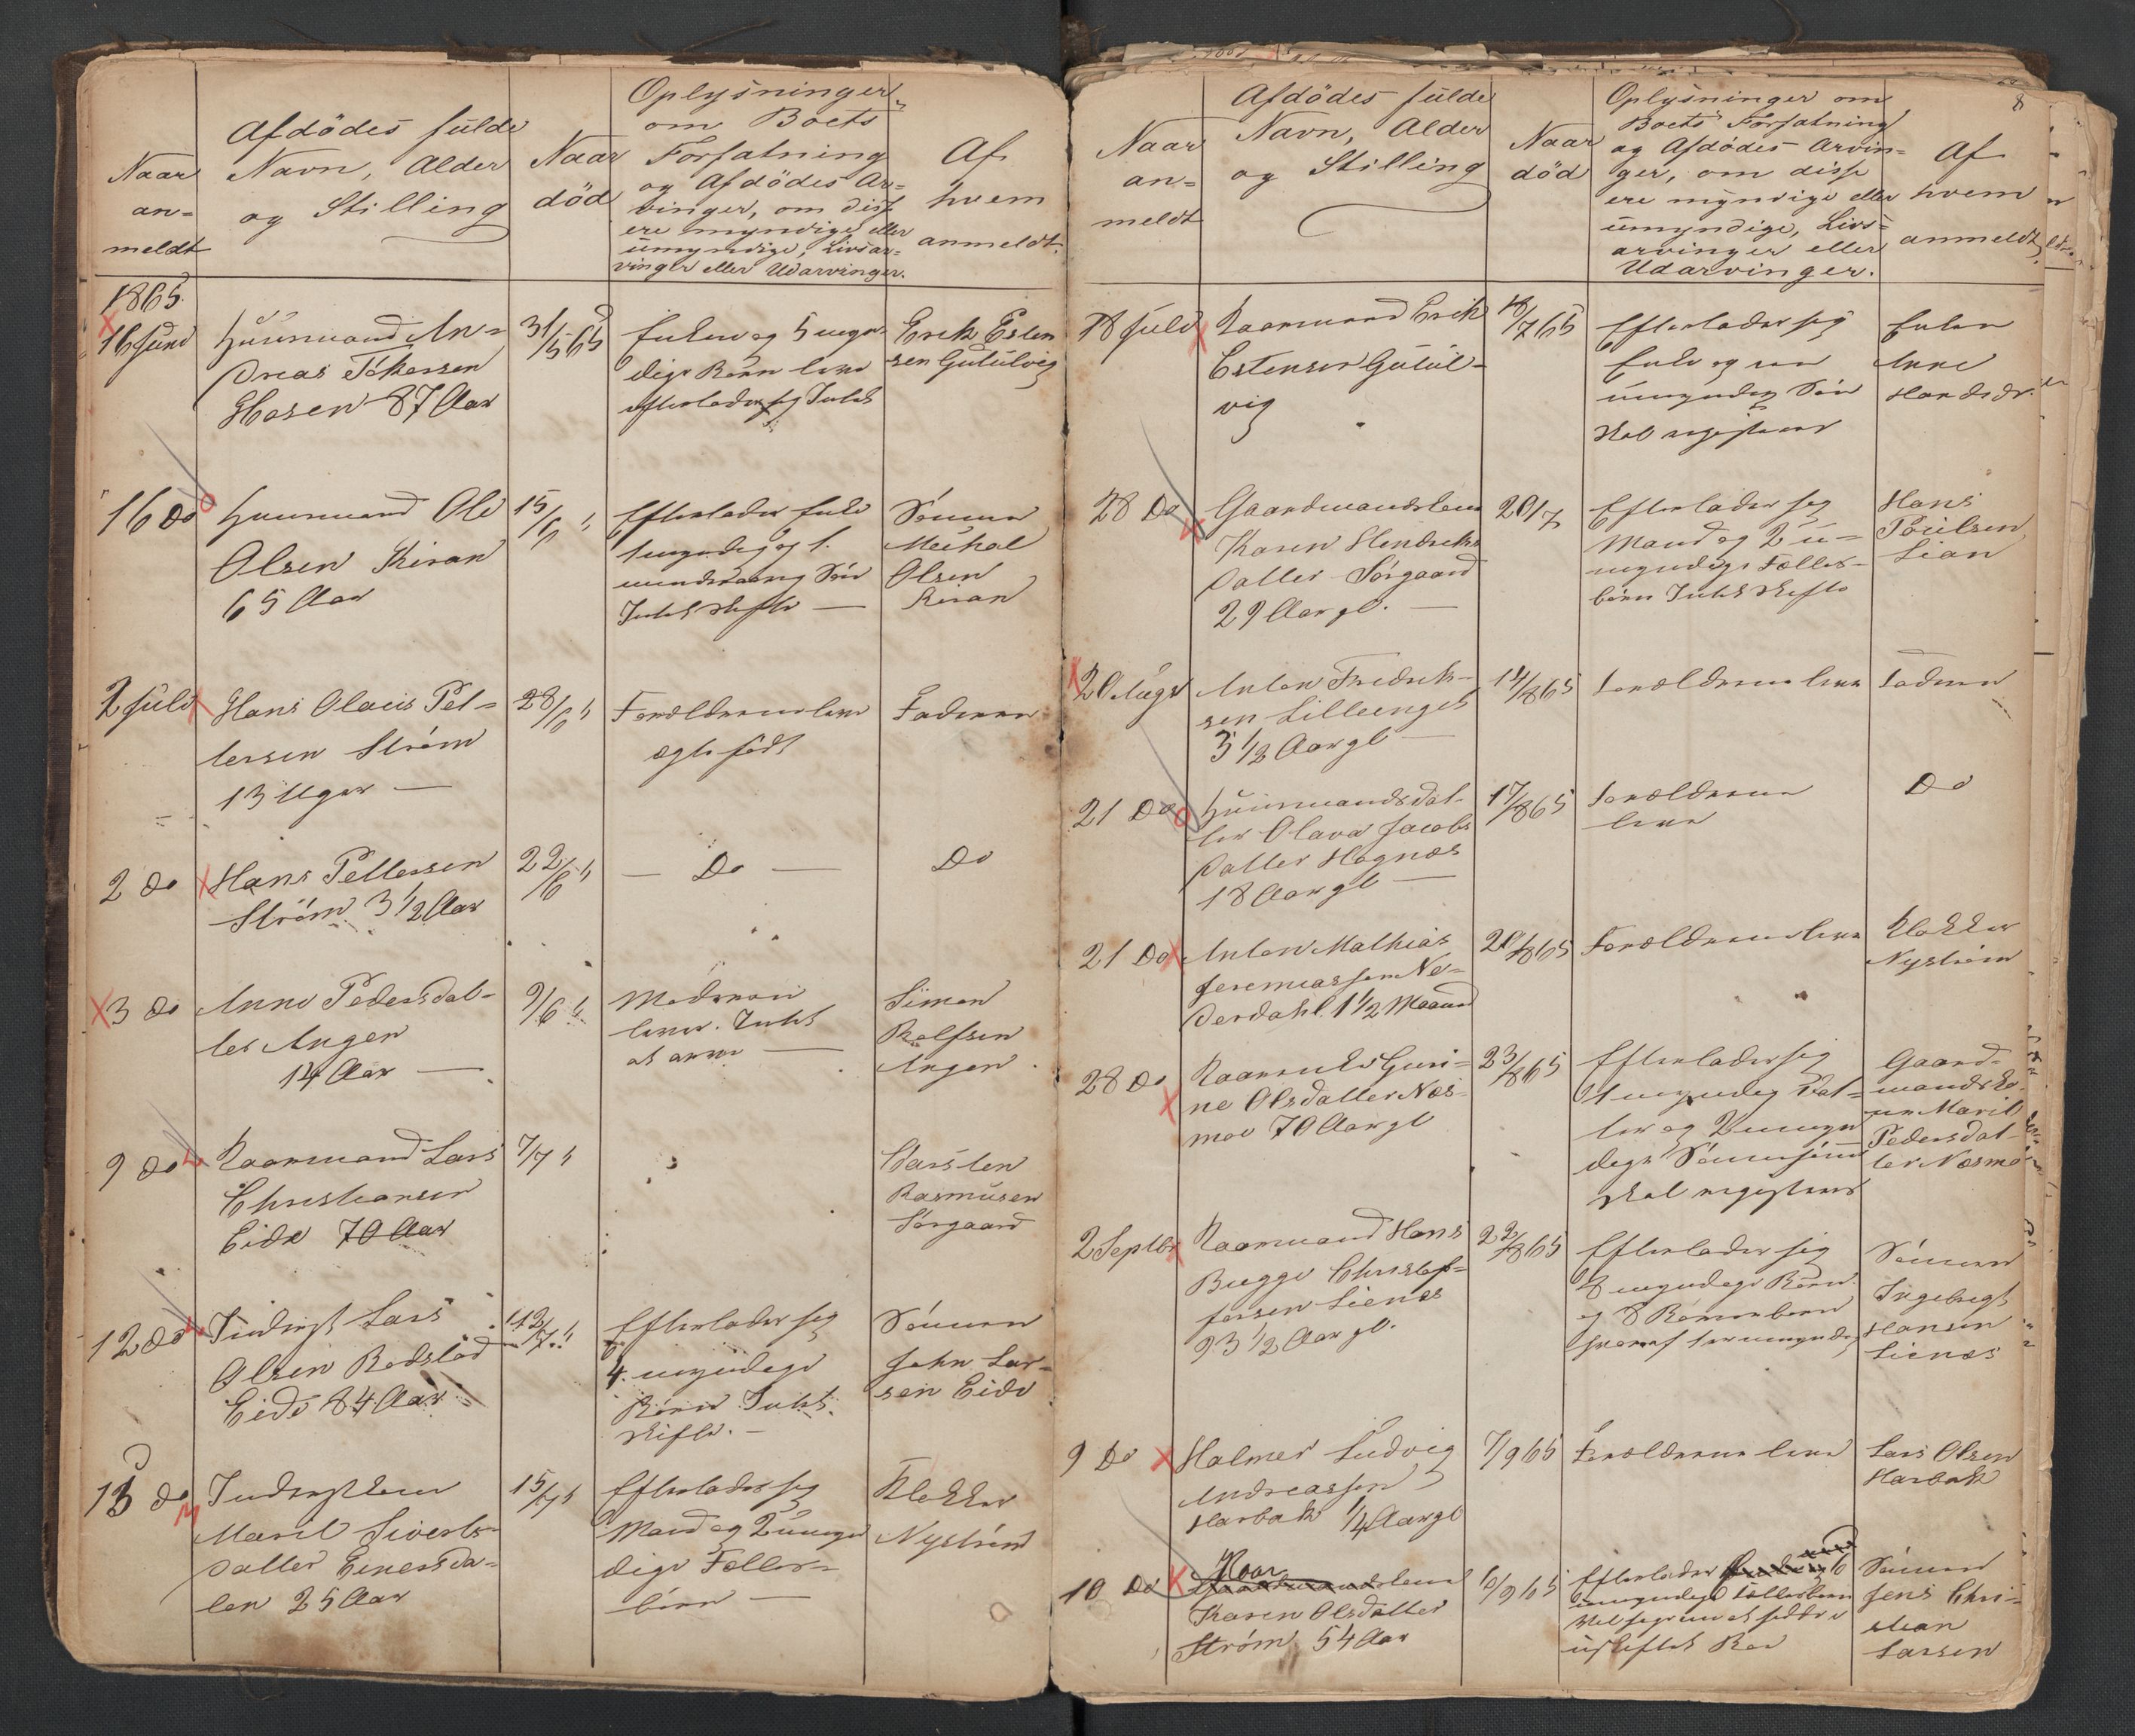 Naar
an=
meldt
Afdödes fulde
Navn, Alder
og Stilling
Naar
död
Oplysninger
om Boets
Forfatning
og Afdödes Ar=
vinger, om disse
ere myndige eller
umyndige, Livsar=
vinger eller Udarvinger.
Af
hvem
anmeldt.
1865
16 Juni
Huusmand An=
dreas Tökersen
Hosen 87 Aar
31/5 65
Enken og 5 myn
dige Börn
efterlader sig Intet
Erik Esten
sen Gutulvig
16 Do
Huusmand Ole
Olsen Kiran
65 Aar
15/6 "
Efterlader Enke
1 myndig og 1.
mindreaarig Sön
Intet Skifte —
Sönnen
Meikal
Olsen
Kiran
2 Juli
Hans Olaus Pet=
tersen Ström
13 Uger —
28/6 "
Forældrene leve
ægte födt
Faderen
2 Do
Hans Pettersen
Ström 3 1/2 Aar
22/6 "
— Do —
Do
3 Do
Anne Pedersdat=
ter Angen
14 Aar —
9/6 "
Moderen
lever. Intet
at arve —
Simon
Rolfsen
Angen
9 Do
Kaarmand Lars
Christiansen
Eide 70 Aar
7/7 "
Carsten
Rasmusen
Sörgaard
12 Do
Inderst Lars
Olsen Rödslöd
Eide 84 Aar
12/7 "
Efterlader sig
4 myndige
Börn Intet
Skifte. —
Sönnen
John Lar=
sen Eide
13 Do
Inderstkone
Marit Siverts=
datter Einersda=
len 25 Aar
15/7 "
Efterlader sig
Mand og 2 umyn
dige Fælles=
börn —
Klokker
Nyström
8
Naar
an=
meldt
Afdödes fulde
Navn, Alder
og Stilling
Naar
död
Oplysninger om
Boets Forfatning
og Afdödes Arvin=
ger, om disse
ere myndige eller
umyndige, Livs=
arvinger eller
Udarvinger.
Af
hvem
anmeldt.
18 Juli
Kaarmand Erik
Estensen Gutul=
vig
18/7 65
Efterlader sig
Enke og een
umyndig Sön
Skal registeres
Enken
Anne
Hansdr.
28 Do
Gaardmandskone
Karen Hendriks
datter Sörgaard
29 Aar gl. —
20/7
Efterlader sig
Mand og 2 u=
myndige Fælles=
börn Intet Skifte
Hans
Poulsen
Lian
20 Augt
Anton Fredrik=
sen Lilleenget
3 1/2 Aar gl —
14/8 65
Forældrene leve
Faderen
21 Do
Huusmandsdat=
ter Olava Jacobs
datter Hognæs
18 Aar gl —
17/8 65
Forældrene
leve
Do
21 Do
Anton Mathias
Jeremiassen Ne=
derdahl 1 1/2 Maaned
20/8 65
Forældrene leve
Klokker
Nyström
28 Do
Kaarenke Guri=
ne Olsdatter Næs=
moe 70 Aar gl
23/8 65
Efterlader sig
1 myndig Dat=
ter og 2 umyn
dige
Skal registeres
Gaard=
mandsko=
ne Marit
Pedersdat=
ter Næsmo
2 Septbr
Kaarmand Hans
Bugge Christof=
fersen Lienæs
93 1/2 Aar gl.
22/8 65
Efterlader sig
8 myndige Börn
og 8 Börnebörn
hvoraf 1 er umyndig
Sönnen
Ingebrigt
Hansen
Lienæs
9 Do
Halmer Ludvig
Andreassen
Harbak 1/4 Aar gl
7/9 65
Forældrene leve
Lars Olsen
Harbak
10 Do
Kaar
kone
Karen Olsdatter
Ström 54 Aar
6/9 65
Efterlader 6
umyndige Fællesbörn
uskiftet Bo
Sönnen
Jens Chri=
stian
Larsen